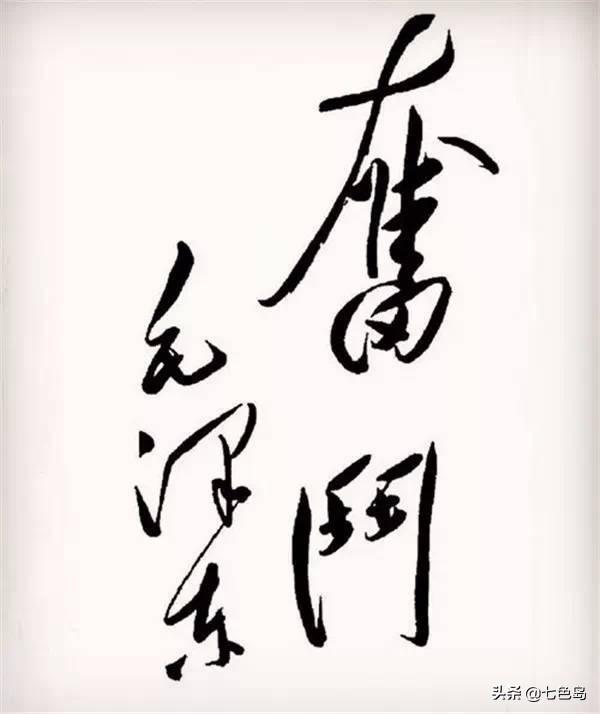 奮鬥
毛泽东
头条 @七色岛